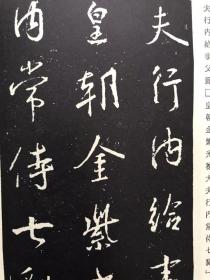 夫行内給事
皇朝金紫
内常侍七
夫行内給事父□皇朝金紫光祿大夫行内常侍七